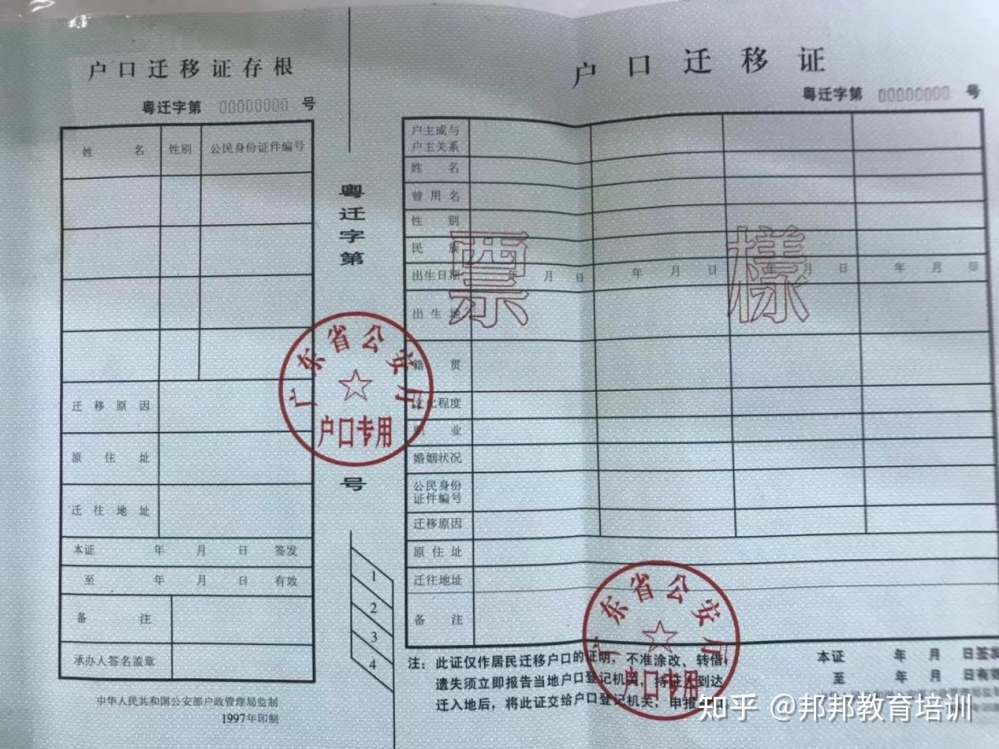 户口迁移证存根
粤迁字第 00000000 号
姓名 性别 公民身份证件编号
迁移原因
原住址
迁往地址
本证 年 月 日 签发
至 年 月 日 有效
备注
承办人签名盖章
中华人民共和国公安部户政管理局监制
1997年印制
粤迁字第
号
1
2
3
4
广东省公安厅
户口专用
户口迁移证
粤迁字第 00000000 号
户主或与
户主关系
姓名
曾用名
性别
民族
出生日期 年 月 日 年 月 日 年 月 日 年 月 日
出生地
票樣
籍贯
文化程度
职业
婚姻状况
公民身份
证件编号
迁移原因
原住址
迁往地址
备注
广东省公安厅
户口专用
注：此证仅作居民迁移户口的证明，不准涂改、转借，
遗失须立即报告当地户口登记机关，持证人到达
迁入地后，将此证交给户口登记机关，申报
本证 年 月 日签发
至 年 月 日有效
知乎 @邦邦教育培训